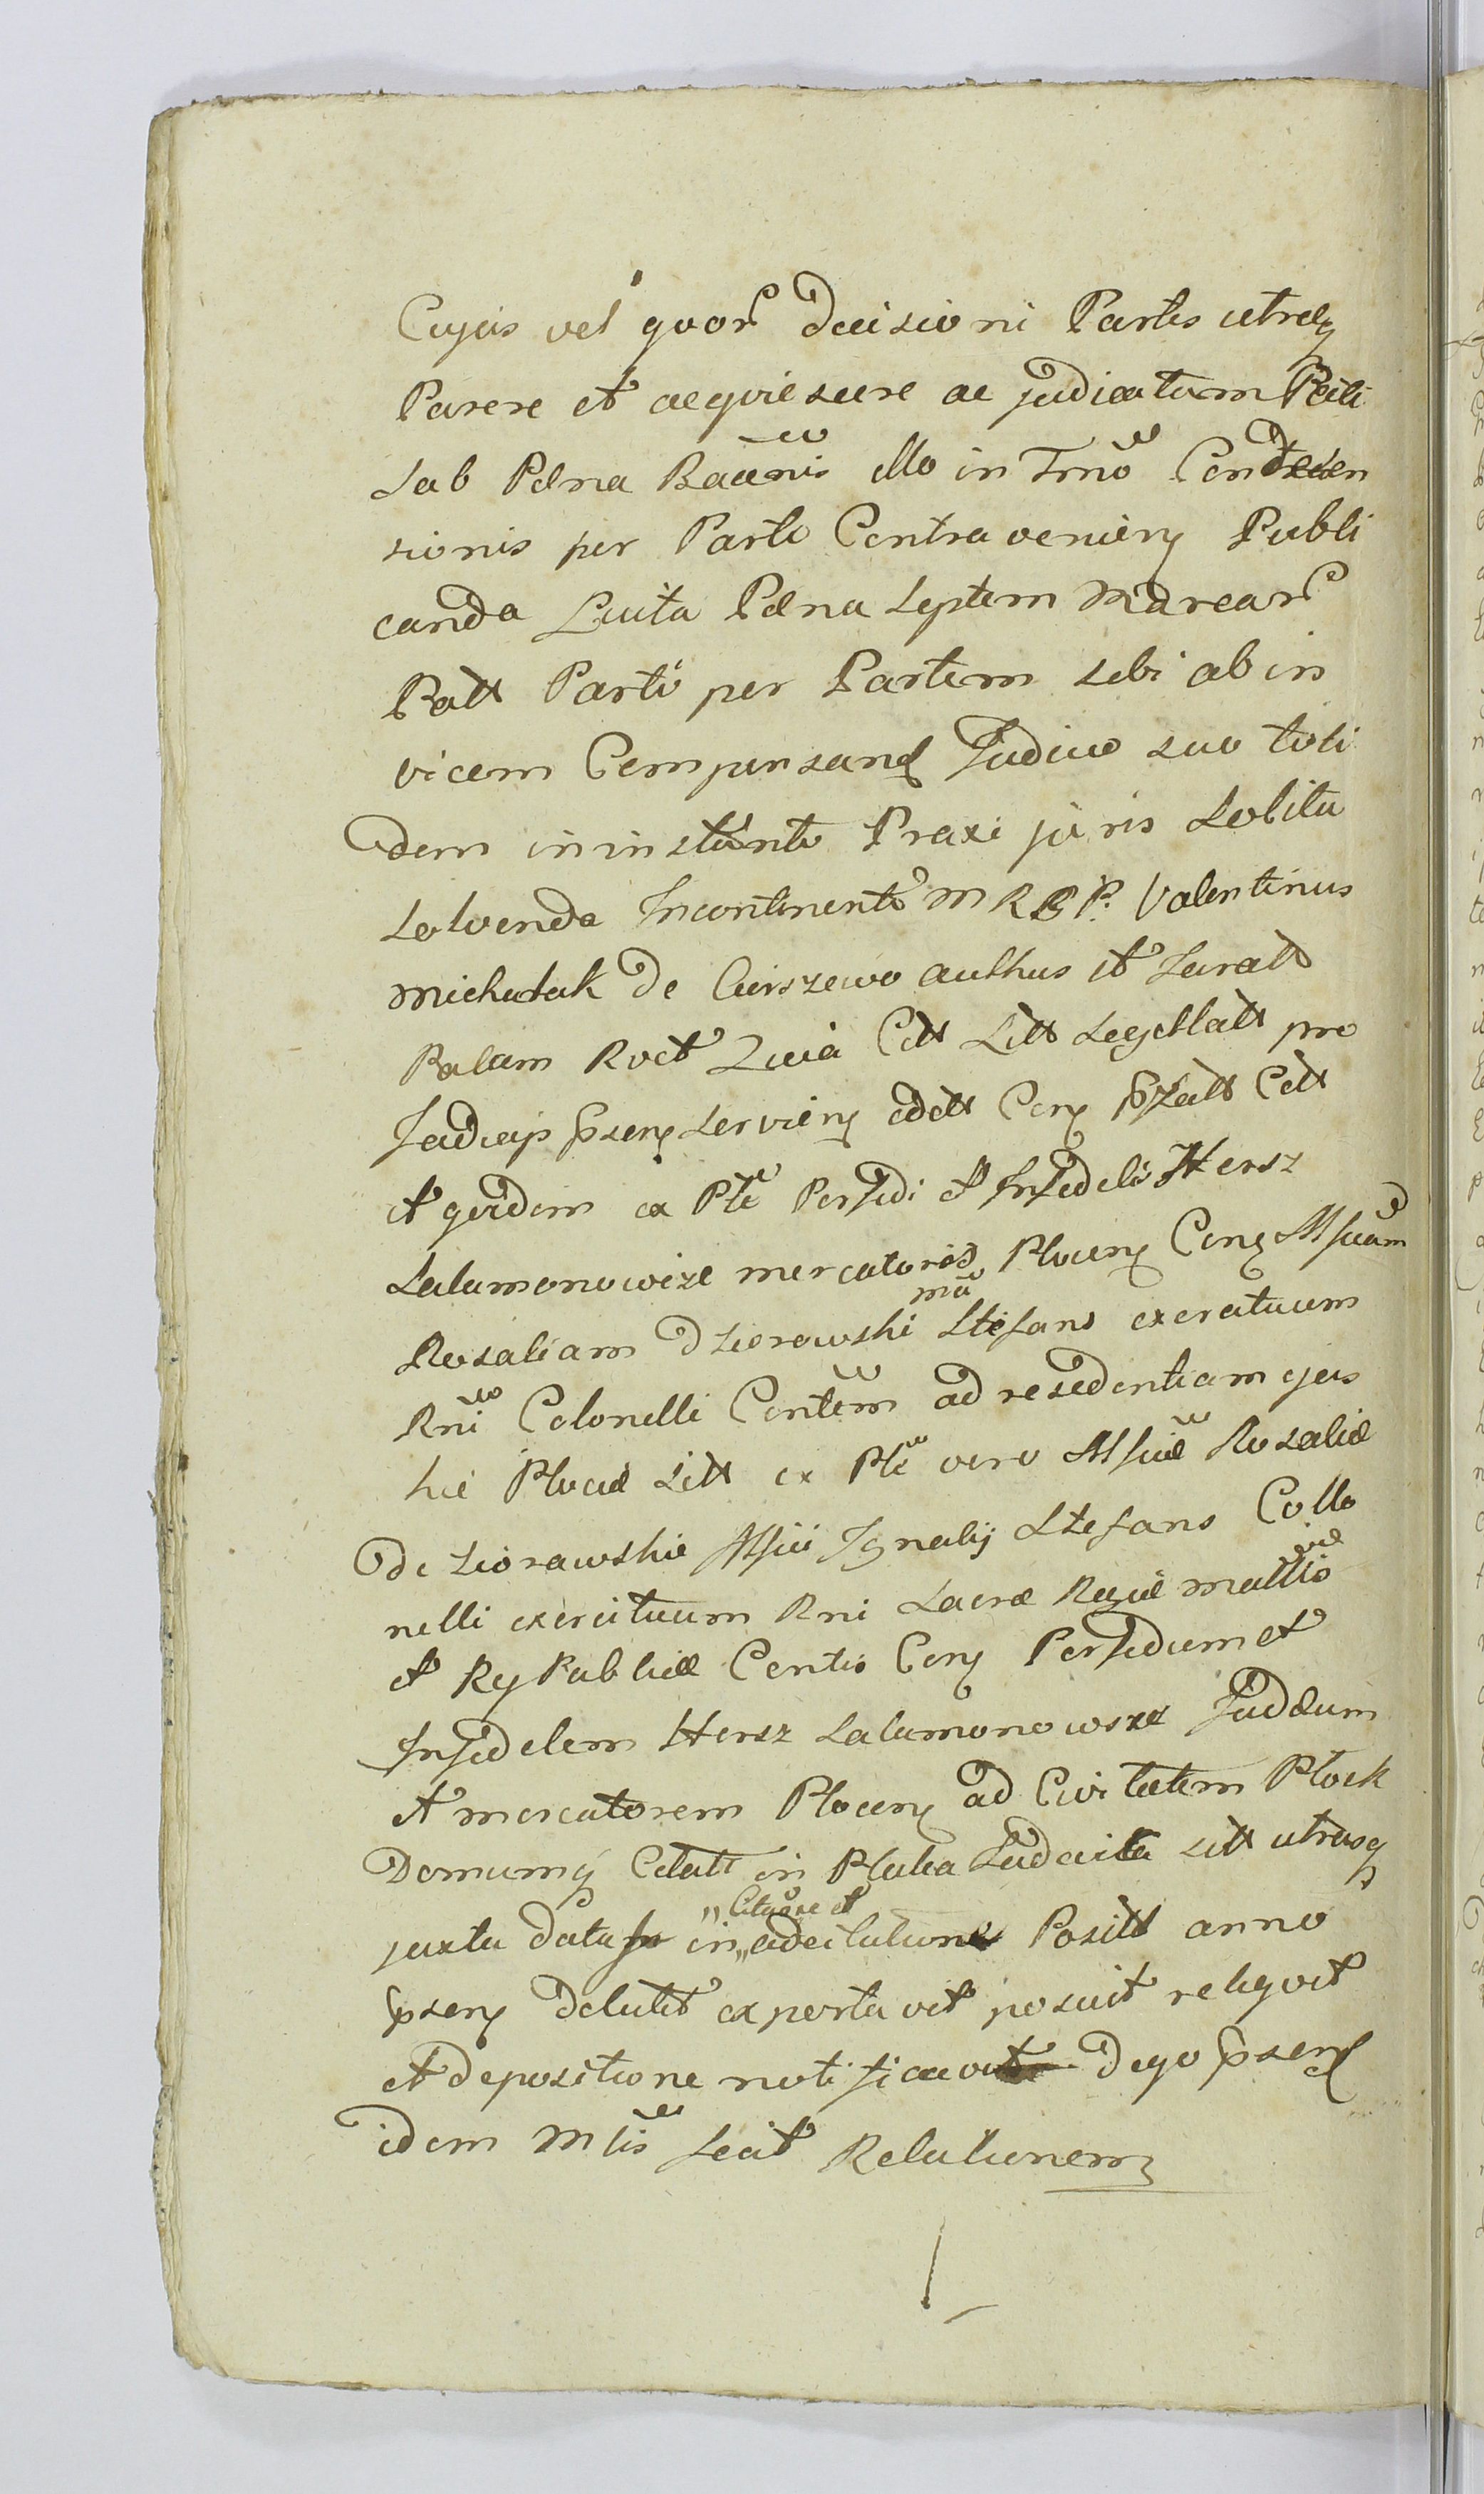 Cujus vel quor Decisioni Partes utraeq
Parere et acquiescere ac judicatum Pati
sub Paena Bannis illo in Tmo Condescen
sionis per Parte Contra venien Publi
canda Luita Paena septem Marcar
Patt Parti per Partem sibi ab in
vicem Compensand Judicio suo toti
dem in instanti Praxi juris solita
solvenda Incontinenti M R P. Valentinus
Michalak de Ciurszewo authus et Juratt
Palam Rect Quia Citt Litt sigillatt pro
Judicijs psen servien edit Con pzatt Citt
et quidem ex Pte Perfidi et Infideli Hersz
Salamonowicze mercatoris Plocen Con Mficam
Rosaliam Dziorowski Stefans exercituum
ma
Rni Colonelli Contem ad residentiam ejus
hic Plociae sitt ex Pte vero Mficae Rosaliae
Dziorawskie Mfici Ignatij Stefans Collo
nelli exercituum Rni Sacrae Regiae mattis
et Ry Publicae Contis Con Perfidum et
Infidelem Hersz Salamonowsze Judaeum
et mercatorem Plocen ad Civitatem Plock
Domumq Citatt in Platea Judaica sitt utrasq
juxta data in „Citaoe et „adcitatione Positt anno
psen Detulit exportavit posuit reliqvit
et Depositione notificavit Deqo psen
idem Mlis fecit Relationem